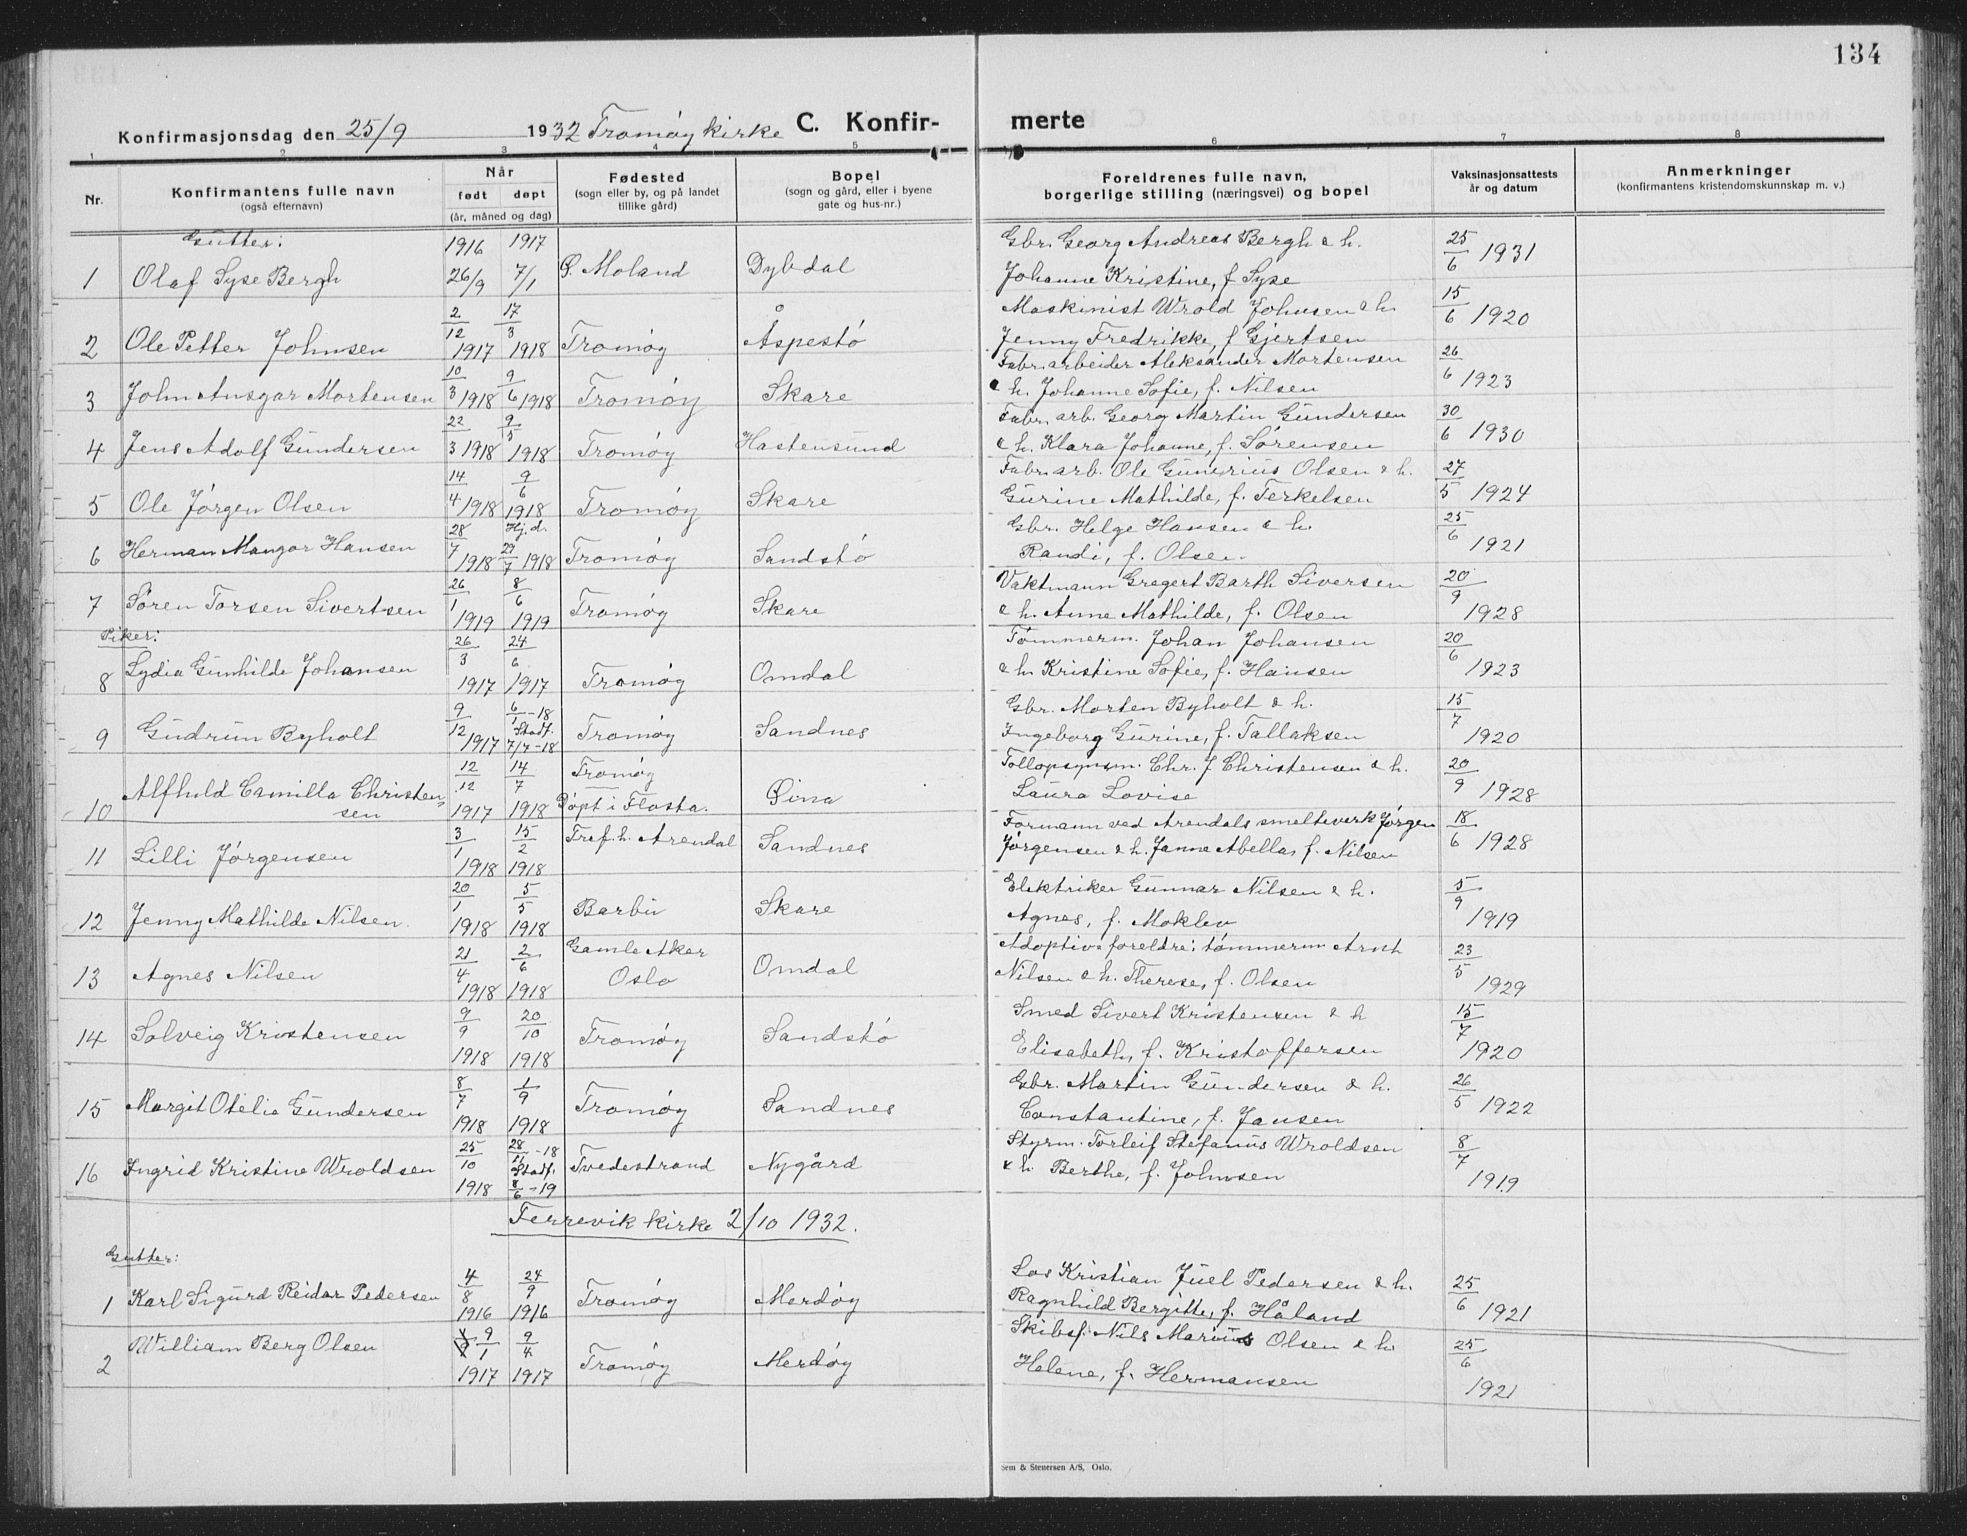 134
Konfirmasjonsdag den 25/9 1932 Tromøy kirke C. Konfir- merte
1 2 3 4 5 6 7 8
Nr. Konfirmantens fulle navn (også efternavn) Når født døpt (år, måned og dag) Fødested (sogn eller by, og på landet tillike gård) Bopel (sogn og gård, eller i byene gate og hus-nr.) Foreldrenes fulle navn, borgerlige stilling (næringsvei) og bopel Vaksinasjonsattests år og datum Anmerkninger (konfirmantens kristendomskunnskap m. v.)
Gutter:
1 Olaf Syse Bergh 1916 26/9 1917 7/1 Ø. Moland Dybdal Gbr. Georg Andreas Bergh & h. Johanne Kristine, f. Syse 25/6 1931
2 Ole Petter Johnsen 2/12 1917 17/3 1918 Tromøy Åspestø Maskinist Wrold Johnsen & h. Jenny Fredrikke, f. Gjertsen 15/6 1920
3 John Ansgar Mortensen 10/3 1918 9/6 1918 Tromøy Skare Fabr. arbeider Aleksander Mortensen & h. Johanne Sofie, f. Nilsen 26/6 1923
4 Jens Adolf Gundersen 22/3 1918 9/5 1918 Tromøy Hastensund Fabr. arb. Georg Martin Gundersen & h. Klara Johanne, f. Sørensen 30/6 1930
5 Ole Jørgen Olsen 14/4 1918 9/6 1918 Tromøy Skare Fabr. arb. Ole Gunerius Olsen & h. Gurine Mathilde, f. Terkelsen 27/5 1924
6 Herman Mangor Hansen 28/7 1918 Hj.d. 29/7 1918 Tromøy Sandstø Gbr. Helge Hansen & h. Randi, f. Olsen 25/6 1921
7 Søren Torsen Sivertsen 26/1 1919 8/6 1919 Tromøy Skare Vaktmann Gregert Barth Siversen & h. Anne Mathilde, f. Olsen 20/9 1928
Piker:
8 Lydia Gunhilde Johansen 26/3 1917 24/6 1917 Tromøy Omdal Tømmerm. Johan Johansen & h. Kristine Sofie, f. Hansen 20/6 1923
9 Gudrun Byholt 9/12 1917 6/1-18 Stadf. 7/7-18 Tromøy Sandnes Gbr. Morten Byholt & h. Ingeborg Gurine, f. Tallaksen 15/7 1920
10 Alfhild Camilla Christensen 12/12 1917 14/7 1918 Tromøy Døpt i Flosta. Øina Tollopsynsm. Chr. J Christensen & h. Laura Lovise 20/9 1928
11 Lilli Jørgensen 3/1 1918 15/2 1918 Tref. h. Arendal Sandnes Formann ved Arendals smelteverk Jørgen Jørgensen & h. Janne Abella, f. Nilsen 18/6 1928
12 Jenny Mathilde Nilsen. 20/1 1918 5/5 1918 Barbu Skare Elektriker Gunnar Nilsen & h. Agnes, f. Moklev 5/9 1919
13 Agnes Nilsen 21/4 1918 2/6 1918 Gamle Aker Oslo Omdal Adoptivforeldre: tømmerm. Arnt Nilsen & h. Therese, f. Olsen 23/5 1929
14 Solveig Kristensen 9/9 1918 20/10 1918 Tromøy Sandstø Smed Sivert Kristensen & h Elisabeth, f. Kristoffersen 15/7 1920
15 Margit Otelie Gundersen 8/7 1918 1/9 1918 Tromøy Sandnes Gbr. Martin Gundersen & h. Constantine, f. Jansen 26/5 1922
16 Ingrid Kristine Wroldsen 25/10 1918 28/11-18 Stadf. 8/6-19 Tvedestrand Nygård Styrm. Torleif Stefanus Wroldsen & h. Berthe, f. Johnsen 8/7 1919
Færevik kirke 2/10 1932.
Gutter:
1 Karl Sigurd Reidar Pedersen 4/8 1916 24/9 1916 Tromøy Merdøy Los Kristian Juel Pedersen & h. Ragnhild Bergitte, f. Håland 25/6 1921
2 William Berg Olsen 9/1 1917 9/4 1917 Tromøy Merdøy Skibsf. Nils Marius Olsen & h. Helene, f. Hermansen 25/6 1921
Sem & Stenersen A/S, Oslo.